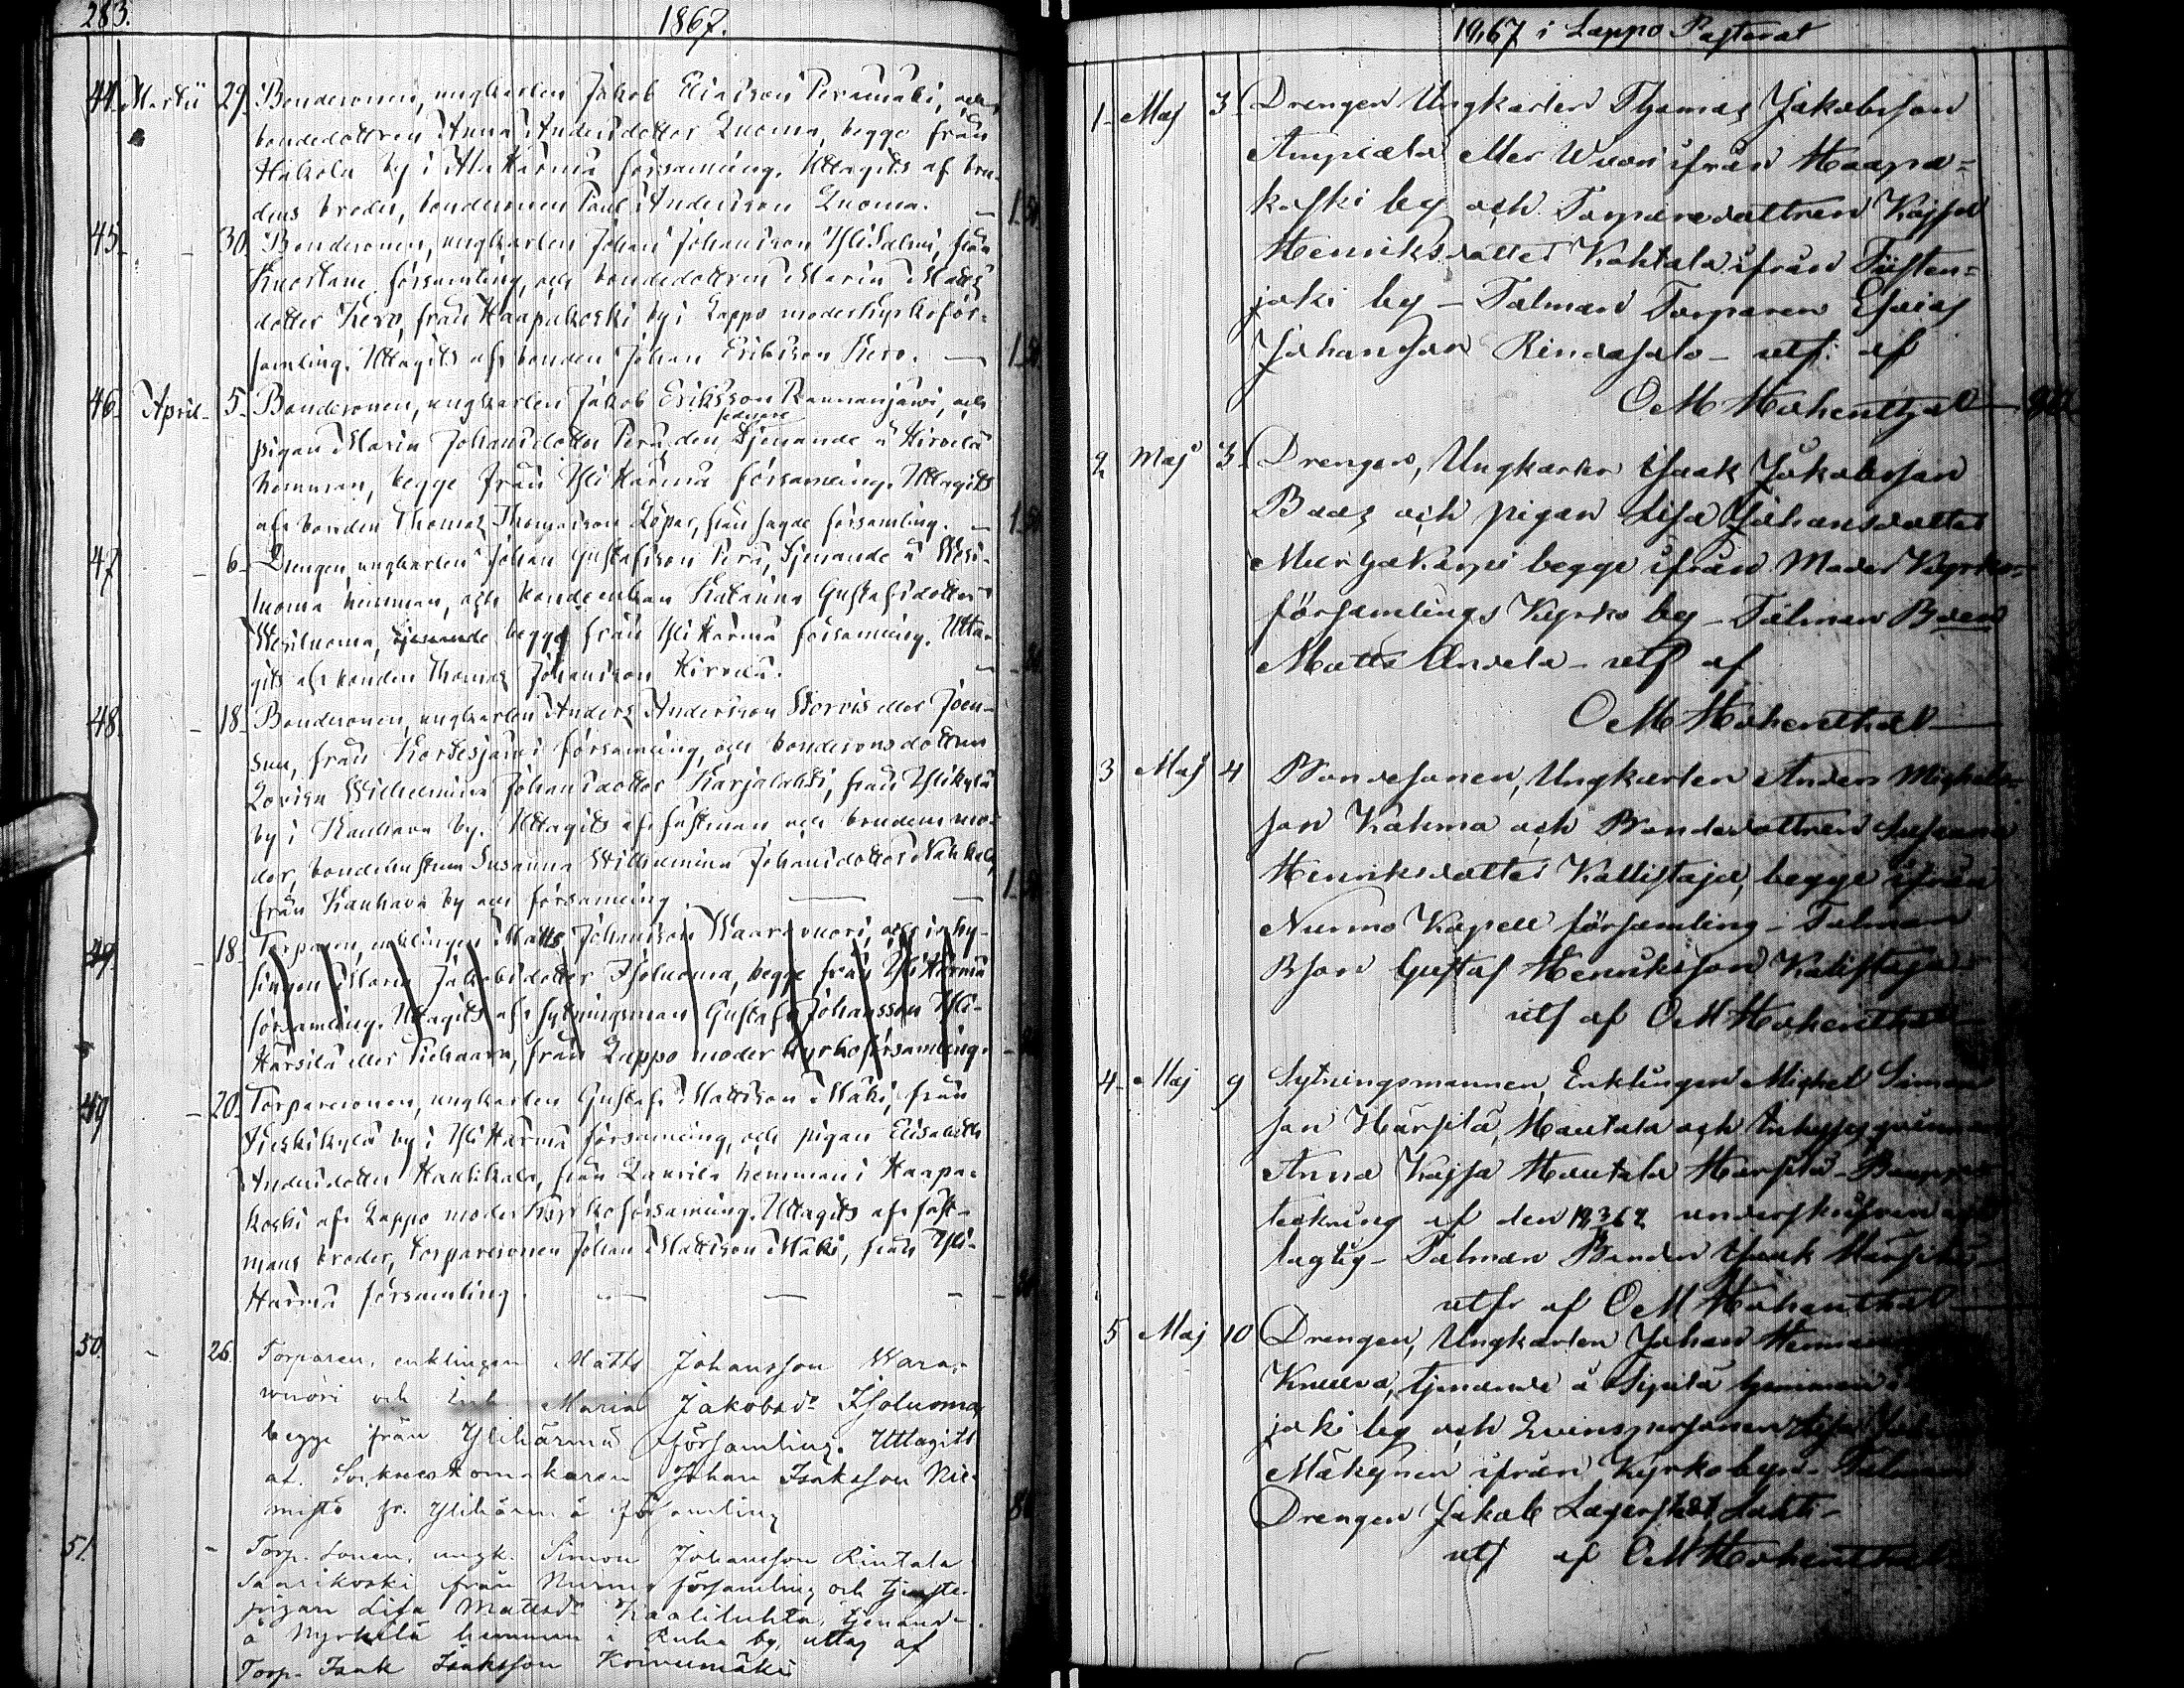 283.
1867.
44. Martii 29. Bondesonen, ungkarlen Jakob Eliasson Peramäki, och
bondedottren Anna Andersdotter Luoma, begge från
Hakola by i Ala Härmä församling. Uttagits af bru-
dens broder, bondesonen Paul Andersson Luoma. — 1.50.
45. — 30. Bondesonen, ungkarlen Johan Johansson YliSalmi, från
Kuortane församling, och bondedottren Maria Matts
dotter Kero, från Haapakoski by i Lappo moderkyrkoför-
samling. Uttagits af bonden Johan Eriksson Kero. — 1.50.
46. April. 5. Bondesonen, ungkarlen Jakob Eriksson Rannanjärvi, och
pigan Maria Johansdotter Perä, den Tjenande å Hirvelä
hemman, begge från Yli Härmä församling. Uttagits
af bonden Thomas Thomasson Löpar, från sagde församling. — 1.50
47 — 6. Drengen, ungkarlen Johan Gustafsson Perä, Tjenande å Wesi-
luoma hemman, och bondeenkan Katarina Gustafsdotter
Wesiluoma, tjenande begge från Yli Härmä församling. Utta-
gits af bonden Thomas Johansson Hirvelä. —
48. — 18. Bondesonen, ungkarlen Anders Andersson Storvis eller Joen-
suu, från Kortesjärvi församling, och bondesonsdottren
Lovisa Wilhelmina Johansdotter Karjalahti, från Ylikylä
by i Kauhava by. Uttagits af fästman och brudens mo-
der, bondehustrun Susanna Wilhelmina Johansdotter
från Kauhava by och församling. — — 1.50
49. — 18. Torparen, enklingen Matts Johansson Waaravuori, och inhy-
singen Maria Jakobsdotter Isoluoma, begge från Yli Härmä
församling. Uttagits af sytningsman Gustaf Johansson Yli-
Härsilä eller Piehaara, från Lappo moder kyrkoförsamling.
49 — 20. Torparesonen, ungkarlen Gustaf Mattsson Mäki, från
Pieskikylä by i Yli Härmä församling, och pigan Elisabeth
Andersdotter Hautikala, från Laurila hemman i Haapa-
koski af Lappo moder Kyrkoförsamling. Uttagits af fäst-
mans broder, torparesonen Johan Mattsson Mäki, från Yli-
Härmä församling. — — —
50. — 26. Torparen, enklingen Matts Johansson Wara-
wuori och Enk. Maria Jakobsdr Isoluoma,
begge från Ylihärmä församling. Uttagits
af Sockneskomakaren Johan Isaksson Nie-
mistö fr. Ylihärmä församling 80
51. — Torp. sonen, ungk. Simon Johansson Rintala
Saarikoski från Nurmo församling och tjenste-
pigan Lisa Mattsdr Kaaliluhta, tjenand-
å Nyrhilä hemman i Ruha by, uttag af
Torp. Isak Isaksson Koivumäki
1867 i Lappo Pastorat
1. Maj 3. Drengen Ungkarlen Thomas Jakobsson
Ampiala eller Wuori ifrån Haapa-
koski by och Torparedottren Kajsa
Henriksdotter Kohtala ifrån Tiisten-
joki by — Talman Torparen Esaias
Johansson Rindasalo — utf. af
O M Hohenthal —
2 Maj 3. Drengen, Ungkarlen Isaak Jakobsson
Baas och pigan Lisa Johansdotter
Meriläkarpi begge ifrån Moder Kyrko-
församlings Kyrko by — Talman Bonden
Matts Andela — utf af
O M Hohenthal —
3 Maj 4 Bondesonen, Ungkarlen Anders Michels-
son Kahma och Bondedottren Susanna
Henriksdotter Kallistaja, begge ifrån
Nurmo Kapell församling — Talman
Bson Gustaf Henriksson Kalistaja
utf af O M Hohenthal —
4. Maj 9 Sytningsmannen, Enklingen Michel Simons-
son Härsilä, Hautala och
Anna Kajsa Hautala Härsilä —
teckning af den underskrifven
laglig — Talman Bonden Isaak Härsilä
utf af O M Hohenthal —
5 Maj 10 Drengen, Ungkarlen Johan
Knuuva, tjenande å Sipilä hemman
joki by och Qvinspersonen Lisa
Mäkynen ifrån Kyrkobyn — Talman
Drengen Jakob Lagerstedt Lahti —
utf af O M Hohenthal